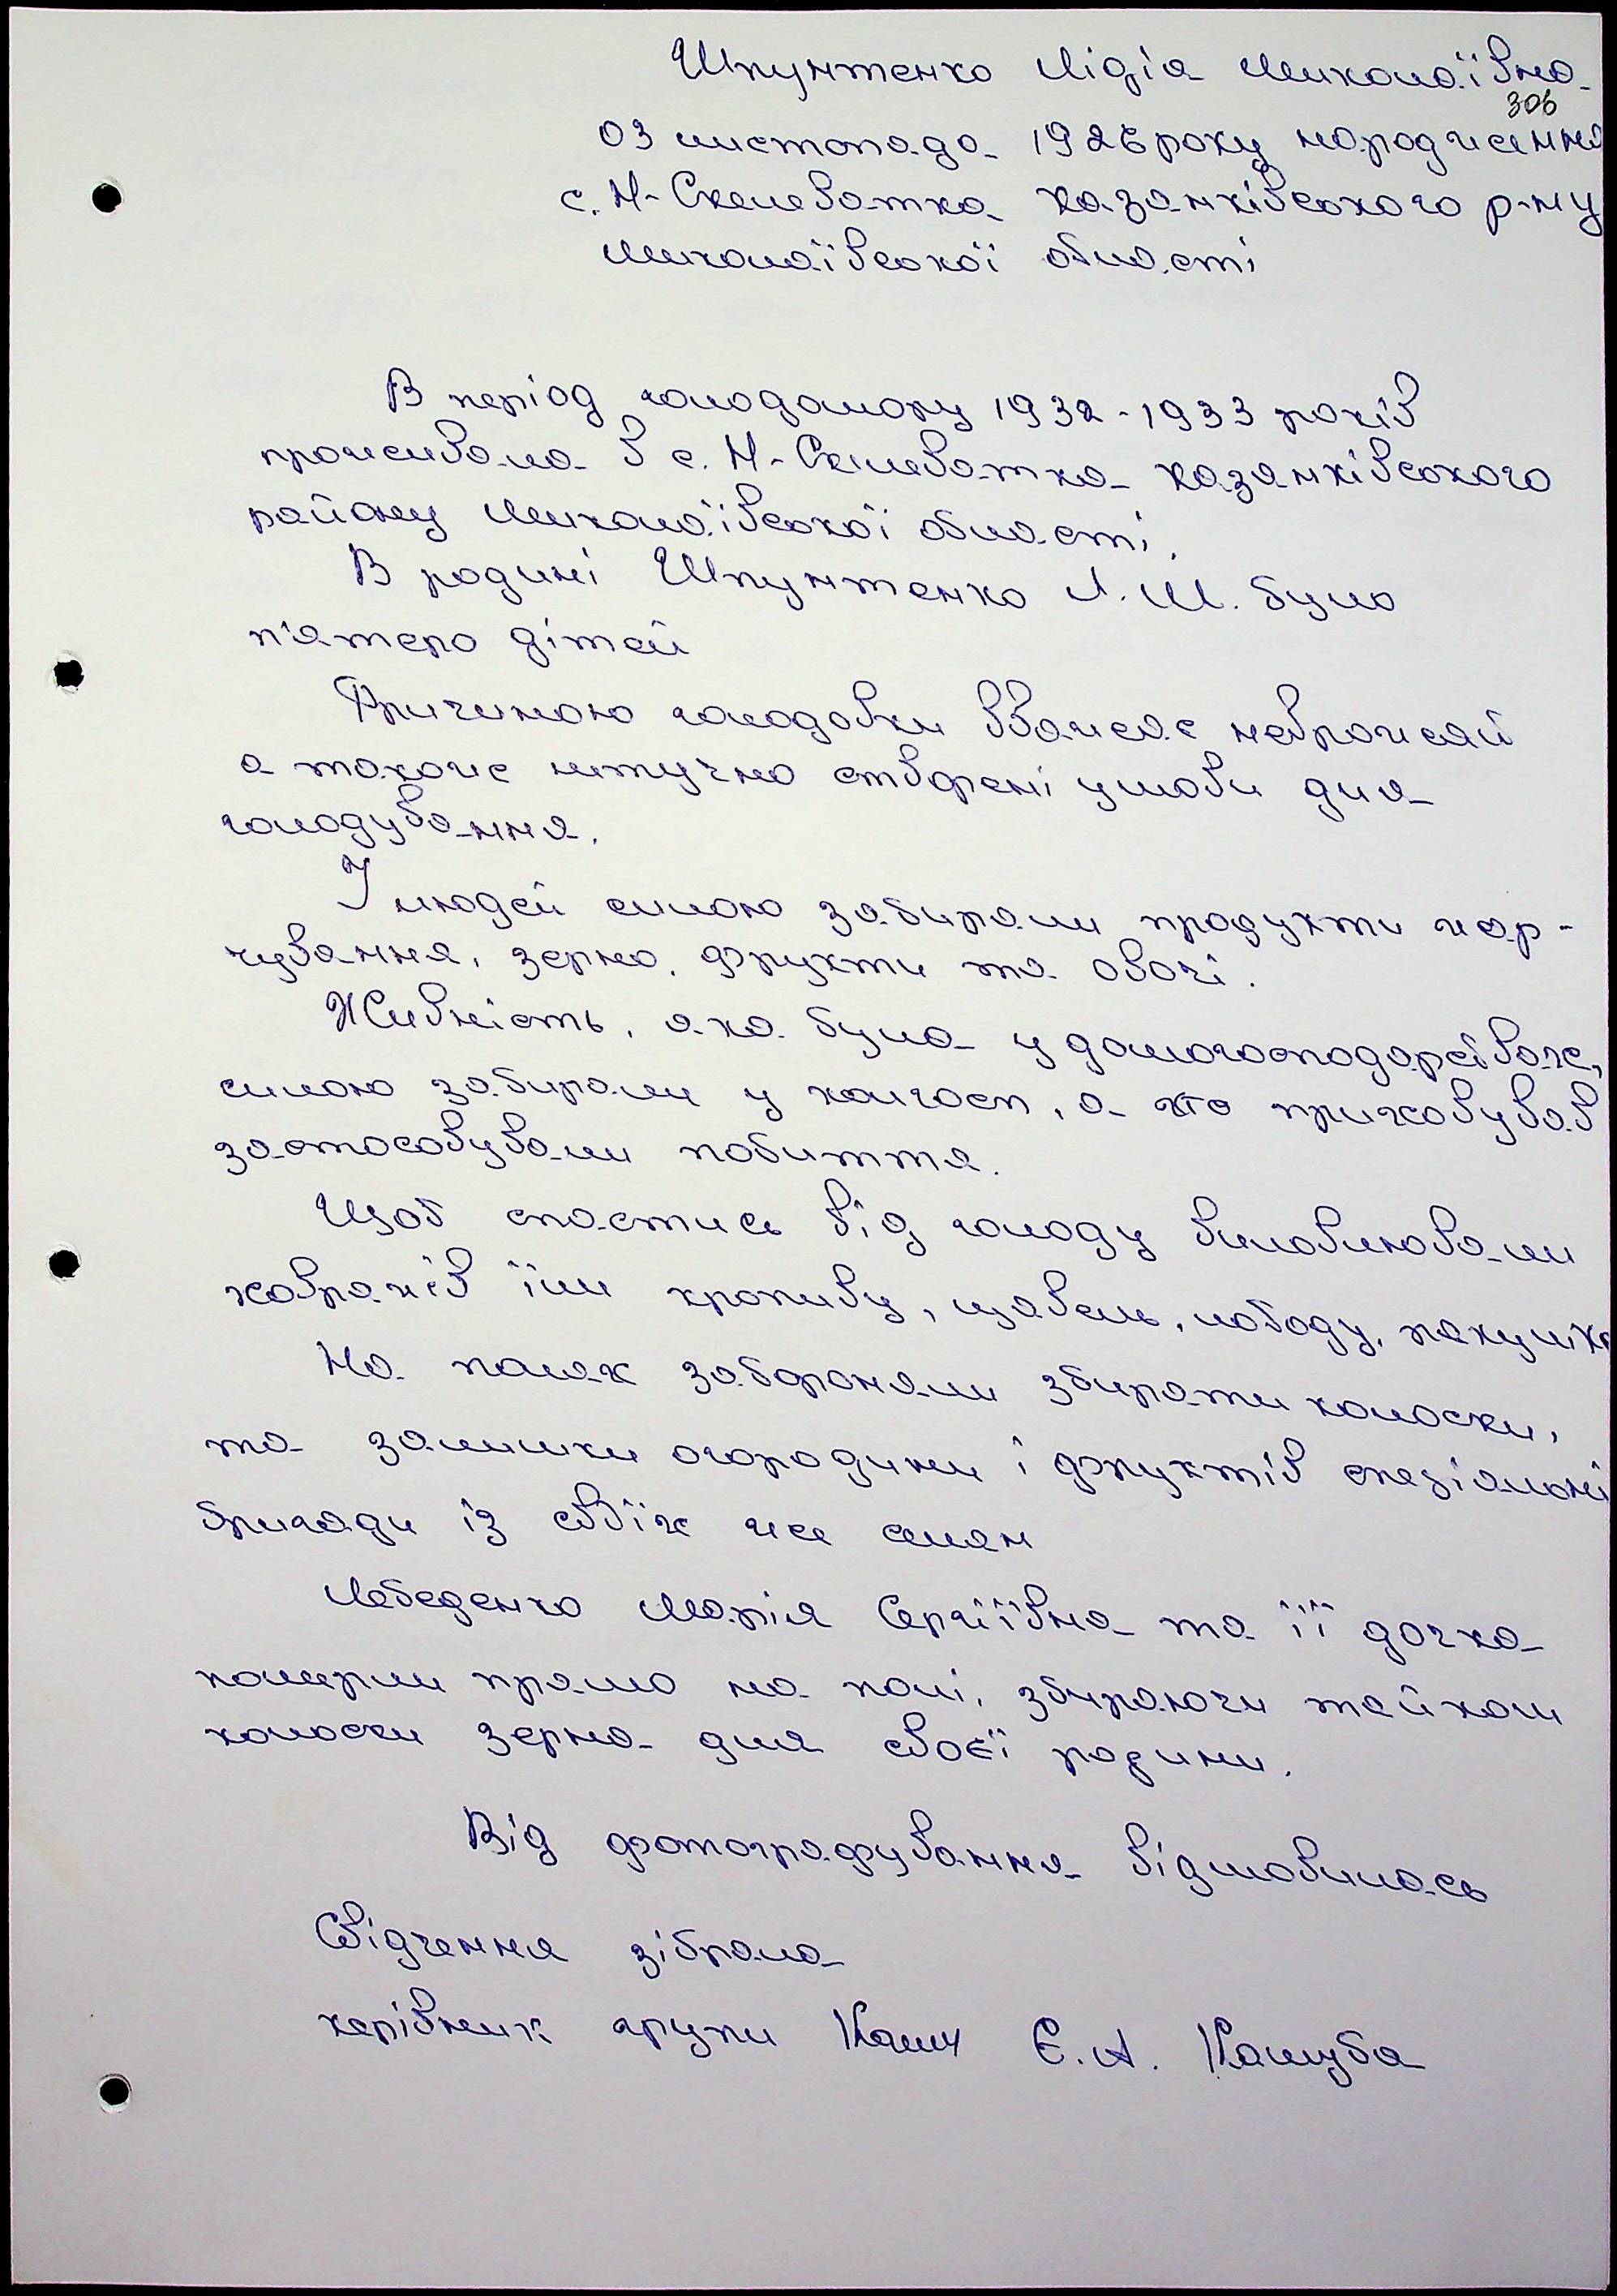 Шпунтенко Лідія Миколаївна
306
03 листопада 1926 року народження
с. Н-Скелеватка Казанківського р-ну
Миколаївської області
В період голодомору 1932-1933 років
проживала в с. Н-Скілеватка Казанківського
району Миколаївської області.
В родині Шпунтенко Л. М. було
п'ятеро дітей
Причиною голодовки вважає неврожай
а також штучно створені умови для
голодування.
У людей силою забирали продукти хар-
чування, зерно, фрукти та овочі.
Живність, яка була у домогосподарствах,
силою забирали у колгосп, а хто приховував
застосовували побиття.
Щоб спастись від голоду виловлювали
ховрахів їли кропиву, щавель, лободу, ракушки
На полях забороняли збирати колоски,
та залишки огородини і фруктів спеціальні
бригади із своїх же селян
Лебеденко Марія Сергіївна та її дочка
померли прямо на полі, збираючи тайком
колоски зерна для своєї родини.
Від фотографування відмовилась
Свідчення зібрала
керівник групи Е. А. Кашуба